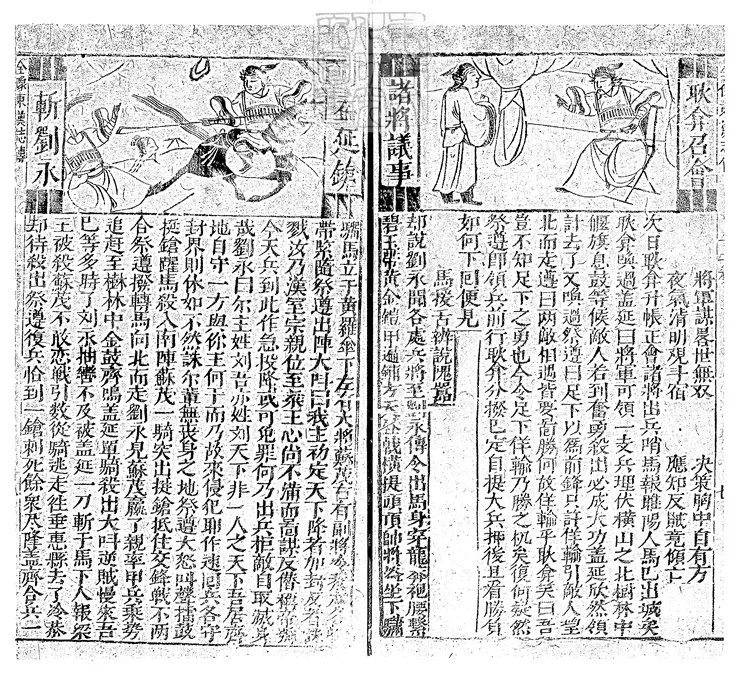 耿弇召會
諸將議事
將軍謀畧世無双　決策胸中自有方
夜氣清明观斗宿　應知反賊竟傾亡
次日耿弇升帳正會諸將出兵哨馬報睢陽人馬已出城矣
耿弇喚過盖延曰將軍可領一支兵埋伏橫山之北樹林中
偃旗息鼓等候敵人若到奮勇殺出必成大功盖延欣然領
計去了又喚過祭遵曰足下以為前鋒只許佯輸引敵人望
北而走遵曰兩敵相遇皆要啚勝何故佯輸乎耿弇笑曰吾
豈不知足下之勇也今令足下佯輸乃勝之机矣復何疑然
祭遵即領兵前行耿弇分撥已定自提大兵押後且看勝負
如何下回便見
馬援舌辨說隗嚣
却說劉永聞各處兵將至永傳令出馬身穿龍袍腰繫
碧玉帶黃金鎧甲方天戟橫提頭頂帥將坐下驌
延鎗
斬劉永
全像東漢志傳
驦馬立于黃羅傘下左有大將蘇茂右有副將
帶祭遵出陣大叫曰我主初定天下降者加封反者
戮汝乃漢室宗親位至梁王心尚不滿而啚謀反
今天兵到此作急投降或可免罪何乃出兵拒敵自取滅身
哉劉永曰尔主姓刘吾亦姓刘天下非一人之天下吾居齊
地自守一方與你主何干而乃故來侵犯耶作速回兵各守
封界則休如不然誅尔輩無喪身之地祭遵大怒叫聲擂鼓
挺鎗躍馬殺入南陣蘇茂一騎突出挺鎗抵住交鋒戰不兩
合祭遵撥轉馬向北而走劉永見蘇茂贏了親率甲兵乘勢
追赶至樹林中金鼓齊鳴盖延單騎殺出大叫逆賊慢來吾
已等多時了刘永抽轡不及被盖延一刀斬于馬下人報梁
王被殺蘇茂不敢恋戰引数從騎逃走往垂惠縣去了
却待殺出祭遵復兵恰到一鎗刺死餘衆尽降盖齊合兵一